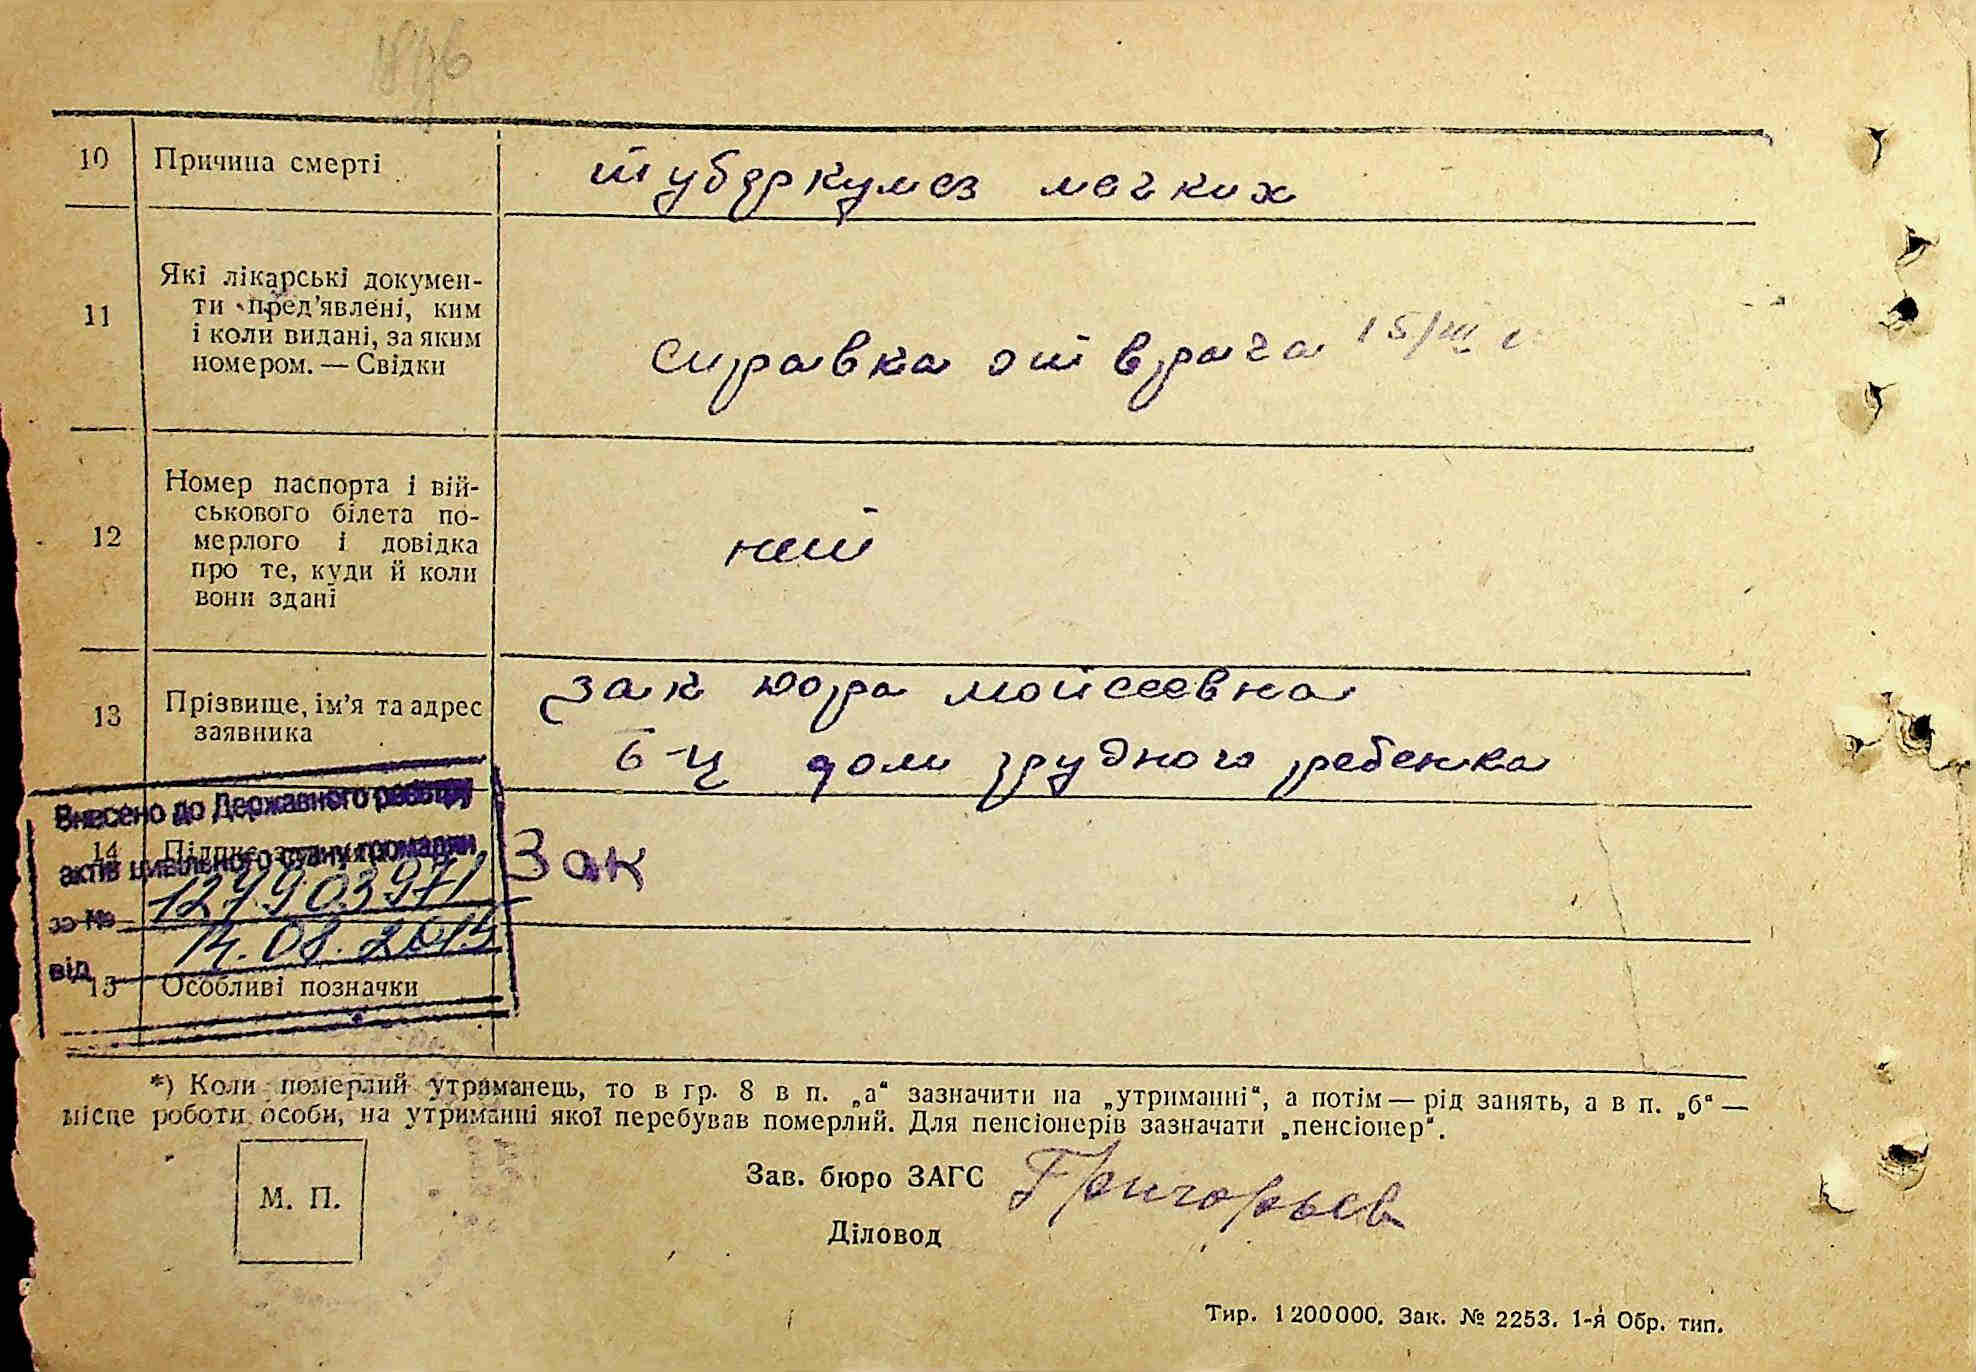 10 Причина смерті туберкулез легких
11 Які лікарські докумен-
ти пред'явлені, ким
і коли видані, за яким
номером. — Свідки
справка от врача 15/III
12 Номер паспорта і вій-
ськового білета по-
мерлого і довідка
про те, куди й коли
вони здані
нет
13 Прізвище, ім'я та адрес
заявника
Зак Дора Мойсеевна
б-ц доли грудного ребенка
Внесено до Державного реєстру
14
актів цивільного стану громадян
Зак
за №
від 14.08.2015
15 Особливі позначки
*) Коли померлий утриманець, то в гр. 8 в п. „а“ зазначити на „утриманні“, а потім — рід занять, а в п. „б“ —
місце роботи особи, на утриманні якої перебував померлий. Для пенсіонерів зазначати „пенсіонер“.
М. П.
Зав. бюро ЗАГС Григорьев
Діловод
Тир. 1200000. Зак. № 2253. 1-я Обр. тип.